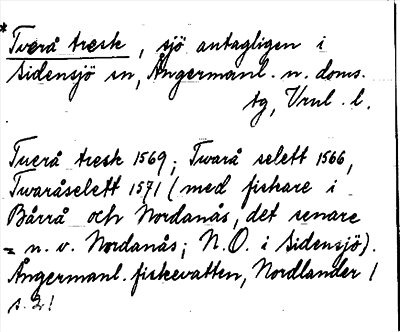 *Tverå tresk, sjö antagligen i
Sidensjö sn, Ångermanl. n. doms.
tg, Vrnl. l.
Tuerå tresk 1569; Twarå selett 1566,
Twaråselett 1571 (med fiskare i
Bårrå och Nordanås, det senare
= n. v. Nordanås; N.O. i Sidensjö).
Ångermanl. fiskevatten, Nordlander 1
s. 2!